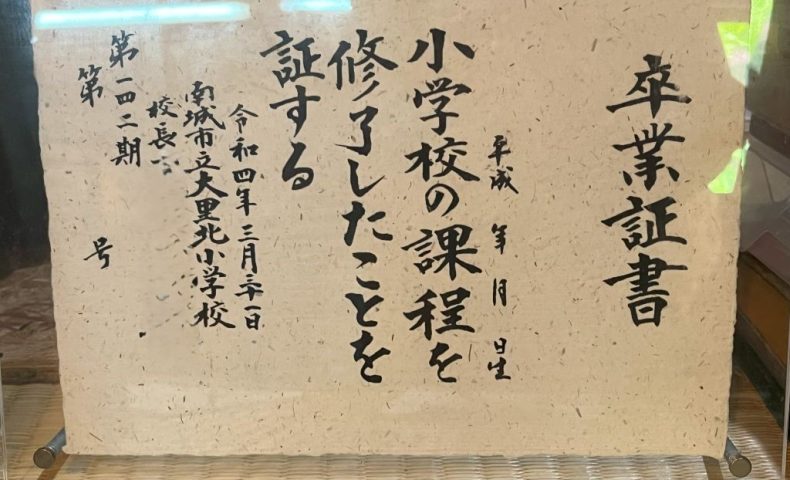 卒業証書
平成　年　月　日生
小学校の課程を
修了したことを
証する
令和四年三月三十一日
南城市立大里北小学校
校長
第一四二期
第　号